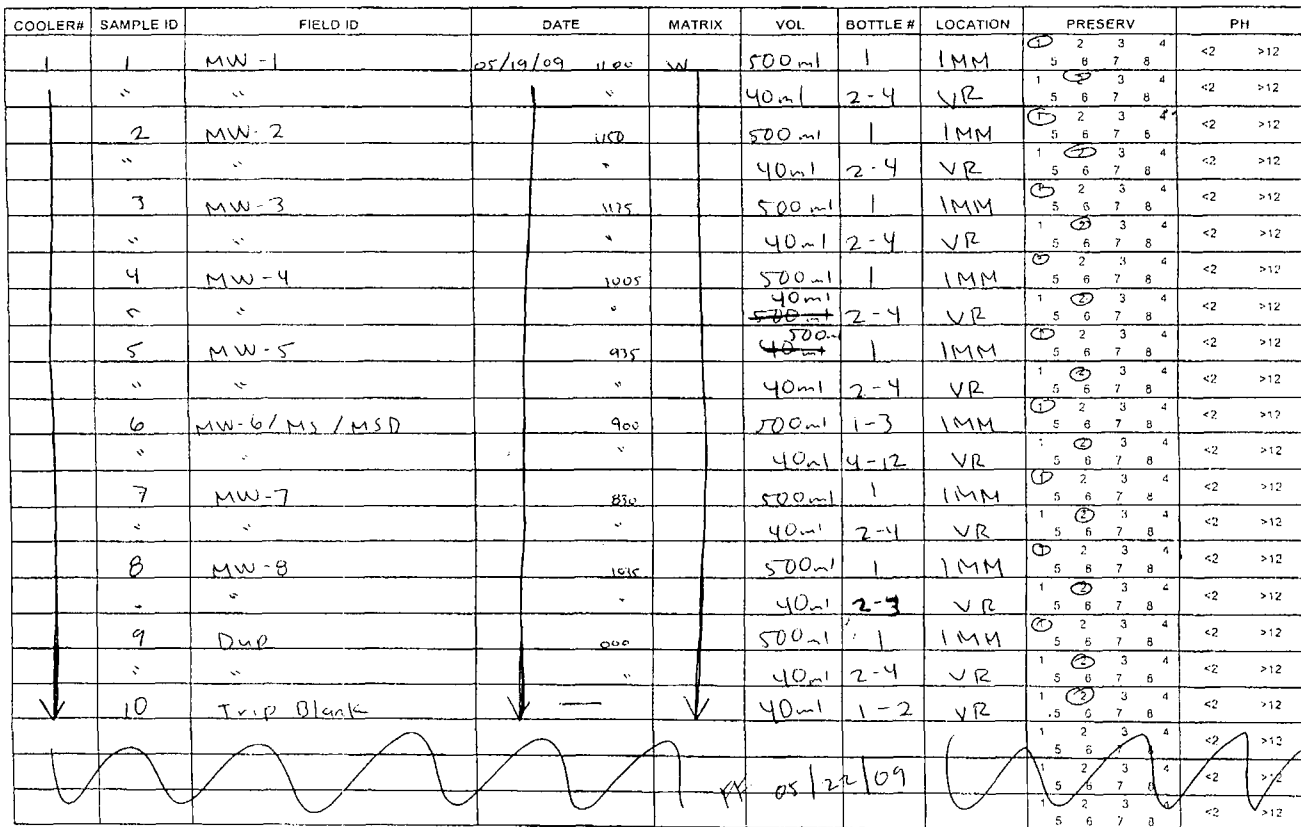 COOLER# SAMPLE ID FIELD ID DATE MATRIX VOL. BOTTLE # LOCATION PRESERV PH
1 1 MW-1 05/19/09 1100 W 500ml 1 IMM 1 2 3 4 5 6 7 8 <2 >12
" " " 40ml 2-4 VR 1 2 3 4 5 6 7 8 <2 >12
2 MW-2 1150 500ml 1 IMM 1 2 3 4 5 6 7 8 <2 >12
" " " 40ml 2-4 VR 1 2 3 4 5 6 7 8 <2 >12
3 MW-3 1125 500ml 1 IMM 1 2 3 4 5 6 7 8 <2 >12
" " " 40ml 2-4 VR 1 2 3 4 5 6 7 8 <2 >12
4 MW-4 1005 500ml 1 IMM 1 2 3 4 5 6 7 8 <2 >12
" " " 40ml 500ml 2-4 VR 1 2 3 4 5 6 7 8 <2 >12
5 MW-5 935 500m 40ml 1 IMM 1 2 3 4 5 6 7 8 <2 >12
" " " 40ml 2-4 VR 1 2 3 4 5 6 7 8 <2 >12
6 MW-6/MS/MSD 900 500ml 1-3 IMM 1 2 3 4 5 6 7 8 <2 >12
" " " 40ml 4-12 VR 1 2 3 4 5 6 7 8 <2 >12
7 MW-7 830 500ml 1 IMM 1 2 3 4 5 6 7 8 <2 >12
" " " 40ml 2-4 VR 1 2 3 4 5 6 7 8 <2 >12
8 MW-8 1035 500ml 1 IMM 1 2 3 4 5 6 7 8 <2 >12
" " " 40ml 2-3 VR 1 2 3 4 5 6 7 8 <2 >12
9 Dup 000 500ml 1 IMM 1 2 3 4 5 6 7 8 <2 >12
" " " 40ml 2-4 VR 1 2 3 4 5 6 7 8 <2 >12
10 Trip Blank — 40ml 1-2 VR 1 2 3 4 5 6 7 8 <2 >12
1 2 3 4 5 6 7 8 <2 >12
05/22/09 1 2 3 4 5 6 7 8 <2 >12
1 2 3 4 5 6 7 8 <2 >12